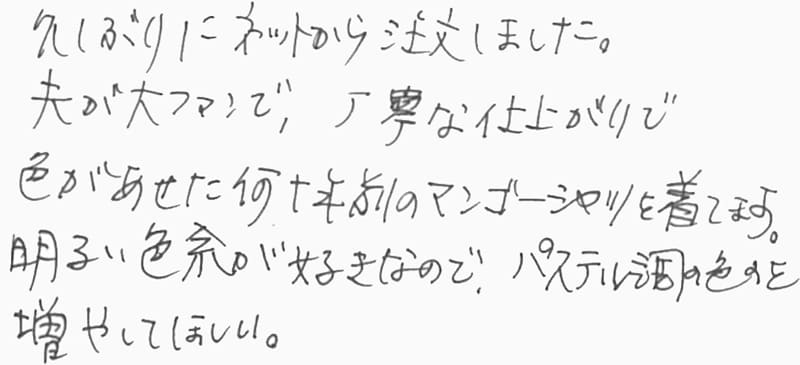 久しぶりにネットから注文しました。
夫が大ファンで、丁寧な仕上がりで
色があせた何十年前のマンゴーシャツを着てます。
明るい色系が好きなので、パステル調の色のを
増やしてほしい。